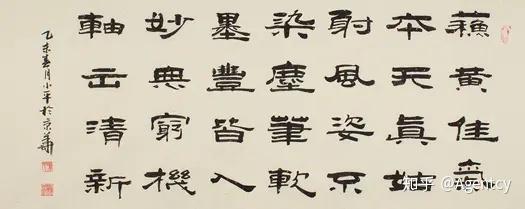 蘇黃佳氣
本天真姑
射風姿不
染塵筆軟
墨豐皆入
妙無窮機
軸出清新
乙未春月小平於京華
知乎 @Agentcy